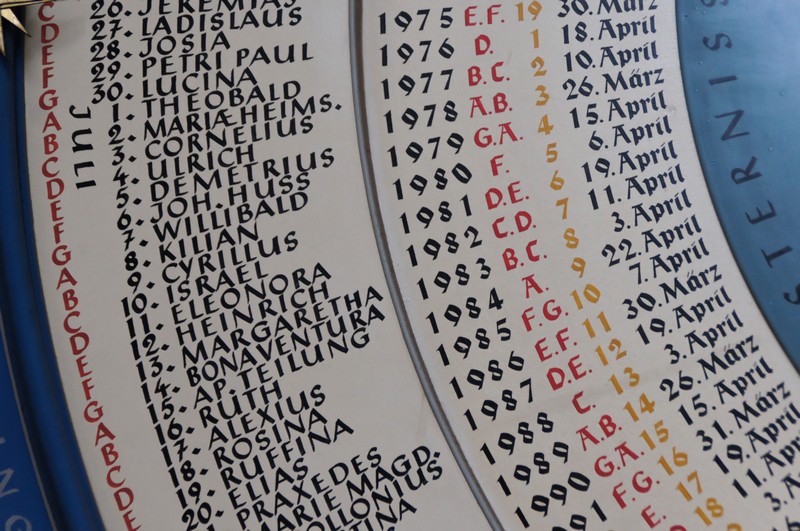 C
D
E
F
G
A
B
C
D
E
F
G
A
B
C
D
E
F
G
A
B
C
D
E
JULI
26. JEREMIAS
27. LADISLAUS
28. JOSIA
29. PETRI PAUL
30. LUCINA
1. THEOBALD
2. MARIÆ HEIMS.
3. CORNELIUS
4. ULRICH
5. DEMETRIUS
6. JOH. HUSS
7. WILLIBALD
8. KILIAN
9. CYRILLUS
10. ISRAEL
11. ELEONORA
12. HEINRICH
13. MARGARETHA
14. BONAVENTURA
15. AP. TEILUNG
16. RUTH
17. ALEXIUS
18. ROSINA
19. RUFFINA
20. ELIAS
PRAXEDES
MARIE MAGD.
1975 E.F. 19 30. März
1976 D. 1 18. April
1977 B.C. 2 10. April
1978 A.B. 3 26. März
1979 G.A. 4 15. April
1980 F. 5 6. April
1981 D.E. 6 19. April
1982 C.D. 7 11. April
1983 B.C. 8 3. April
1984 A. 9 22. April
1985 F.G. 10 7. April
1986 E.F. 11 30. März
1987 D.E. 12 19. April
1988 C. 13 3. April
1989 A.B. 14 26. März
1990 G.A. 15 15. April
1991 F.G. 16 31. März
E. 17 19. April
18 11. April
STERNISS